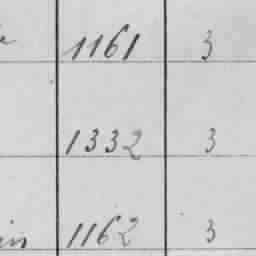 1161 3
1332 3
1162 3